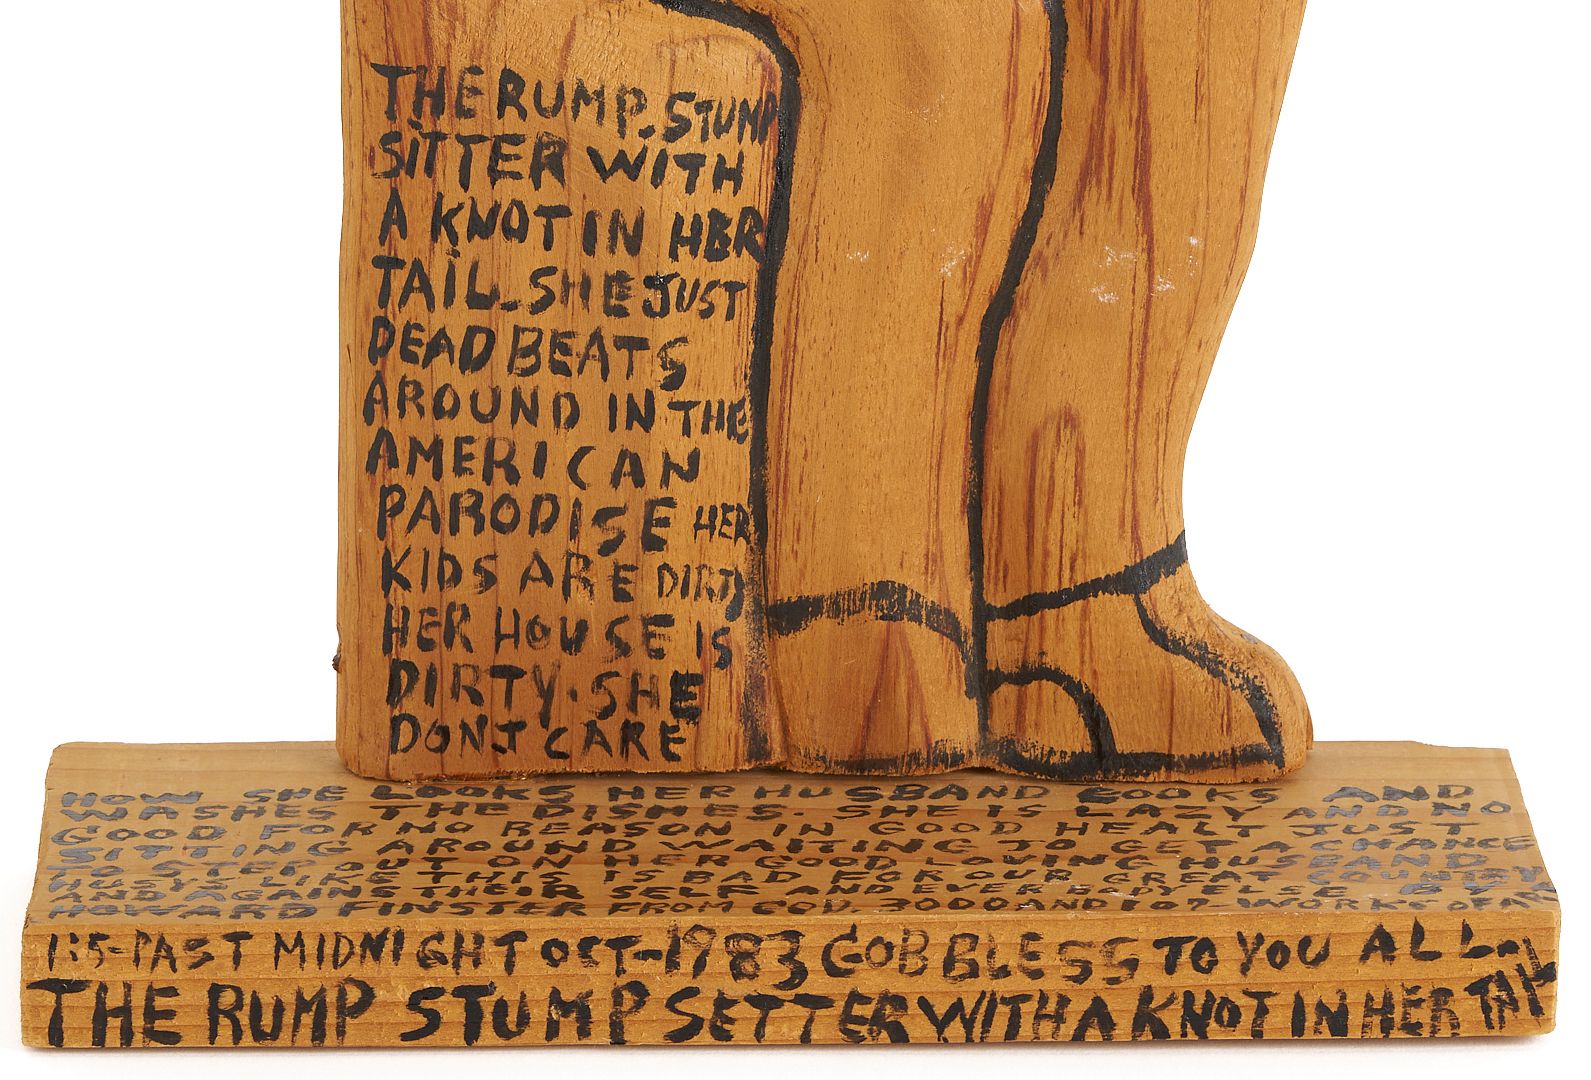 THE RUMP. STUMP
SITTER WITH
A KNOT IN HER
TAIL. SHE JUST
DEAD BEATS
AROUND IN THE
AMERICAN
PARODISE HER
KIDS ARE DIRTY
HER HOUSE IS
DIRTY. SHE
DONT CARE
HOW SHE LOOKS HER HUSBAND COOKS AND
WASHES THE DISHES. SHE IS LAZY AND NO
GOOD FOR NO REASON IN GOOD HEALT JUST
SITTING AROUND WAITING TO GET A CHANCE
TO STEP OUT ON HER GOOD LOVING HUSBAND
HUSYS LIKE THIS IS BAD FOR OUR GREAT COUNTRY
AND AGAINS THEIR SELF AND EVER BODY ELSE BY
HOWARD FINSTER FROM GOD 3000 AND 107-WORKS OF ART
1:5-PAST MIDNIGHT OCT-1983 GOB BLESS TO YOU ALL-
THE RUMP STUMP SETTER WITH A KNOT IN HER TAIL